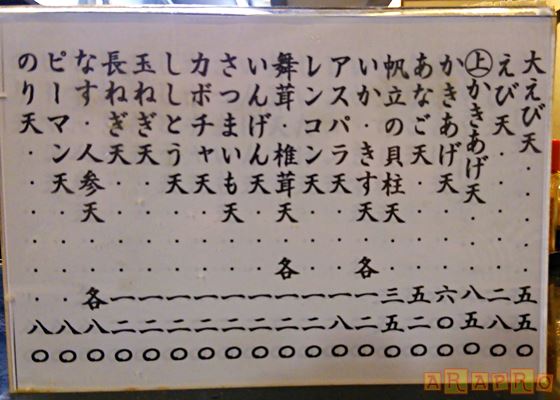 大えび天・・・・五五〇
えび天・・・・・二八〇
㊤かきあげ天・・八五〇
かきあげ天・・・六〇〇
あなご天・・・・五二〇
帆立の貝柱天・・三五〇
いか・きす天・各一二〇
アスパラ天・・・一八〇
レンコン天・・・一二〇
舞茸・椎茸天・各一二〇
いんげん天・・・一二〇
さつまいも天・・一二〇
カボチャ天・・・一二〇
ししとう天・・・一二〇
玉ねぎ天・・・・一二〇
長ねぎ天・・・・一二〇
なす・人参天・・各八〇
ピーマン天・・・・八〇
のり天・・・・・・八〇
ARAPRO